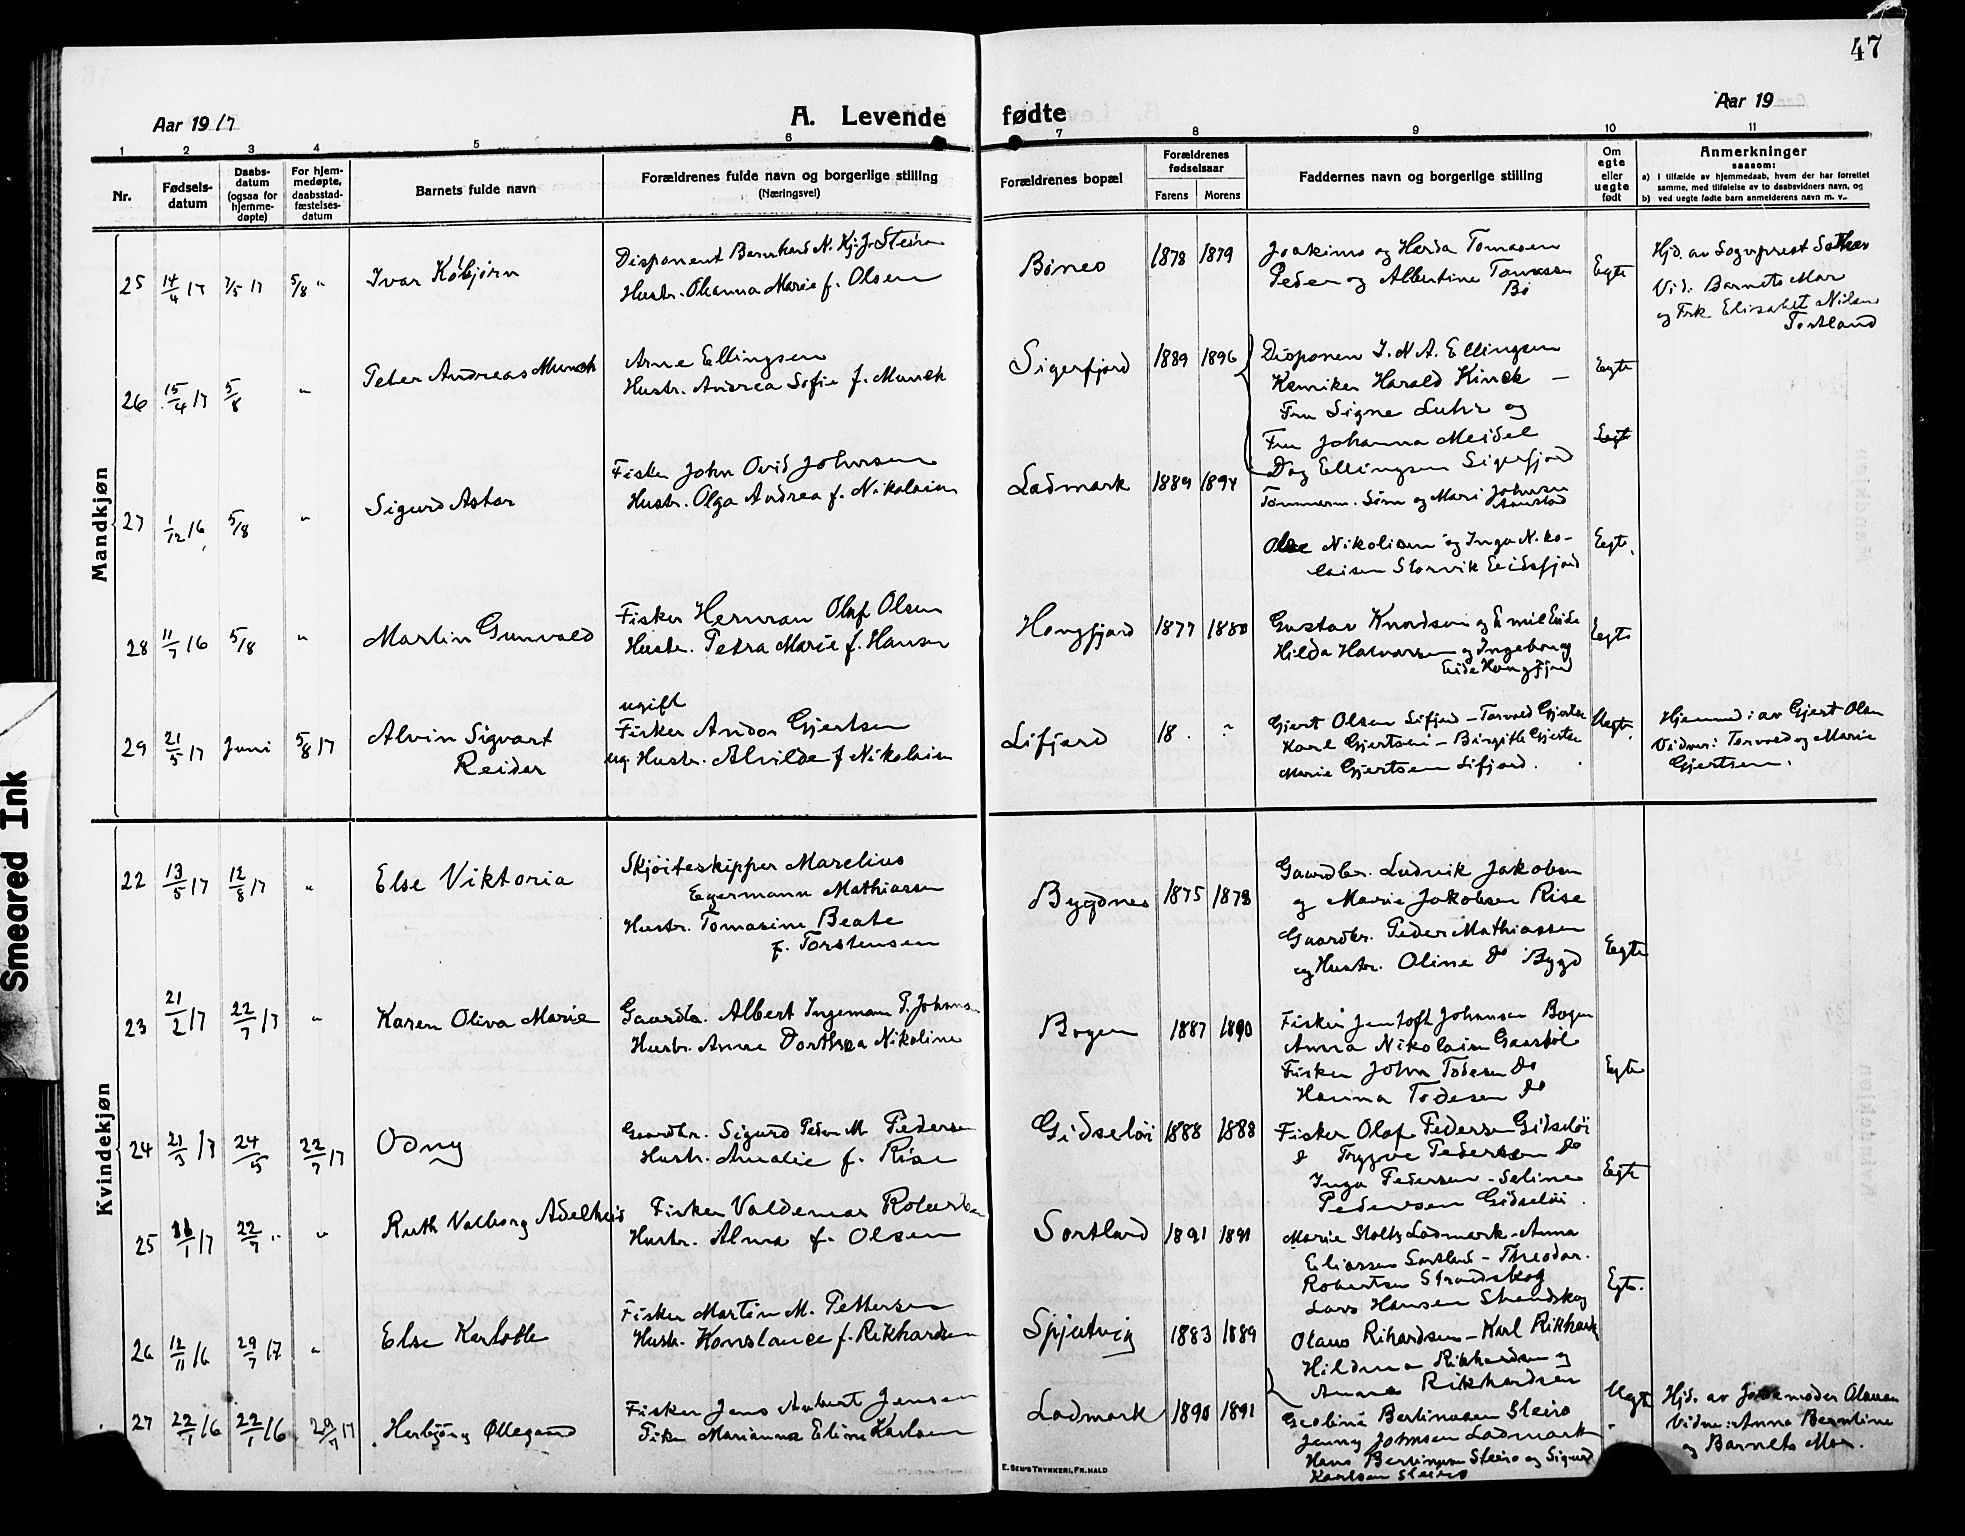 47
Aar 1917
A. Levende fødte
Aar 19
1 2 3 4 5 6 7 8 9 10 11
Nr.
Fødsels-
datum
Daabs-
datum
(ogsaa for
hjemme-
døpte)
For hjem-
medøpte,
daabsstad-
fæstelses-
datum
Barnets fulde navn
Forældrenes fulde navn og borgerlige stilling
(Næringsvei)
Forældrenes bopæl
Forældrenes
fødselsaar
Farens Morens
Faddernes navn og borgerlige stilling
Om
egte
eller
uegte
født
Anmerkninger
saasom:
a) i tilfælde av hjemmedaab, hvem der har forrettet
samme, med tilføielse av to daabsvidners navn, og
b) ved uegte fødte barn anmelderens navn m. v.
Mandkjøn
25 14/4 17 7/5 17 5/8 "
Ivar Kobjørn
Disponent Bernhard N. Kj. J. Steiro
Hustr. Oleanna Marie f. Olsen
Bønes 1878 1879
Joakims og Herda Tomasen
Peder og Albertine Tomassen
Bø
Egte
Hjd. av Sogneprest
Vid: Barnets Mor
og Frk Elisabet Nilsen
Sortland
26 15/4 17 5/8 "
Peter Andreas Munch
Arne Ellingsen
Hustr. Andrea Sofie f. Munch
Sigerfjord 1889 1896
Disponen J. N. A. Ellingsen
Kemiker Harald Kinck —
Fru Signe Luhr og
Fru Johanna Meidel
Dag Ellingsen Sigerfjord
Eegte
27 1/12 16 5/8 "
Sigurd Astor
Fisker John Ovid Johnsen
Hustr. Olga Andrea f. Nikolaisen
Ladmark 1889 1894
Tømmerm. Sørn og Mari Johnsen
Nikolisen og Inga Niko-
laisen Storvik Eidsfjord
Eegte.
28 11/7 16 5/8 "
Martin Gunvald
Fisker Herman Olaf Olsen
Hustr. Petra Marie f. Hansen
Hongfjord 1877 1880
Gustav Knudsen og Emil Eide
Hilda Halvorsen og Ingeborg
Eide Hongfjord
Eegte
29 21/5 17 Juni 5/8 17
Alvin Sigvart
Reidar
ugift
Fisker Andor Gjertsen
ug. Hustr. Alvilde f Nikolaisen
Lifjord 18 . "
Gjert Olsen Lifjord - Torvald Gjertsen
Karl Gjertsen - Birgitte Gjertsen
Marie Gjertsen Lifjord.
Uegte.
Hjemmed: av Gjert Olsen
Vidner: Torvald og Marie
Gjertsen.
Kvindekjøn
22 13/5 17 12/8 17 "
Else Viktoria
Skjøiteskipper Marelius
Egermann Mathiassen
Hustr. Tomasine Beate
f. Torstensen
Bygdnes 1875 1878
Gaardbr. Ludvik Jakobsen
og Marie Jakobsen Rise
Gaardbr. Peder Mathiassen
og Hustr. Oline do Bygd
Eegte
23 21/2 17 22/7 17 "
Karen Oliva Marie
Gaardb. Albert Ingeman P. Johans
Hustr. Anna Dorthea Nikoline
Bogen 1887 1890
Fisker Jentoft Johansen Bogen
Anna Nikolaisen
Fisker John Todesen do
Hanna Todesen do
Eegte
24 21/3 17 24/5 22/7 17
Odny
Gaardbr. Sigurd Peder M. Pedersen
Hustr. Amalie f. Rise
Gidseløi 1888 1888
Fisker Olaf Pedersen Gidseløi
d Trygve Pedersen do
Inga Pedersen - Seline
Pedersen Gidseløi.
Eegte
25 /1 17 22/7 " "
Ruth Valborg Adelheid
Fisker Valdemar Robertsen
Hustr. Alma f. Olsen
Sortland 1891 1891
Marie Stolts Ladmark - Anna
Eliassen Sortland - Theodor.
Robertsen Strandskog
Lars Hansen Strandskog
Egte.
26 12/11 16 29/7 17 "
Else Karlotte
Fisker Martin M. Pettersen
Hustr. Konstance f. Rikhardsen
Spjutvig 1883 1889
Olaus Rihardsen - Karl Rikhards
Hildma Rikhardsen og
Anna Rikhardsen
27 22/1 16 22/1 16 29/7 17
Herbjørg Øllegaard
Fisker Jens Aubert Jensen
Pike Marianna Eline Karlsen
Ladmark 1890 1891
Bertinusen Steiro
Jenny Johnsen Ladmark
Hans Bertinusen Steiro og Sigurd
Karlsen Steiro
Uegte
Hjd. av Jordemoder
Vidne: Anna Berntine
og Barnets Mor.
E. SEMS TRYKKERI, FR.HALD
Smeared Ink